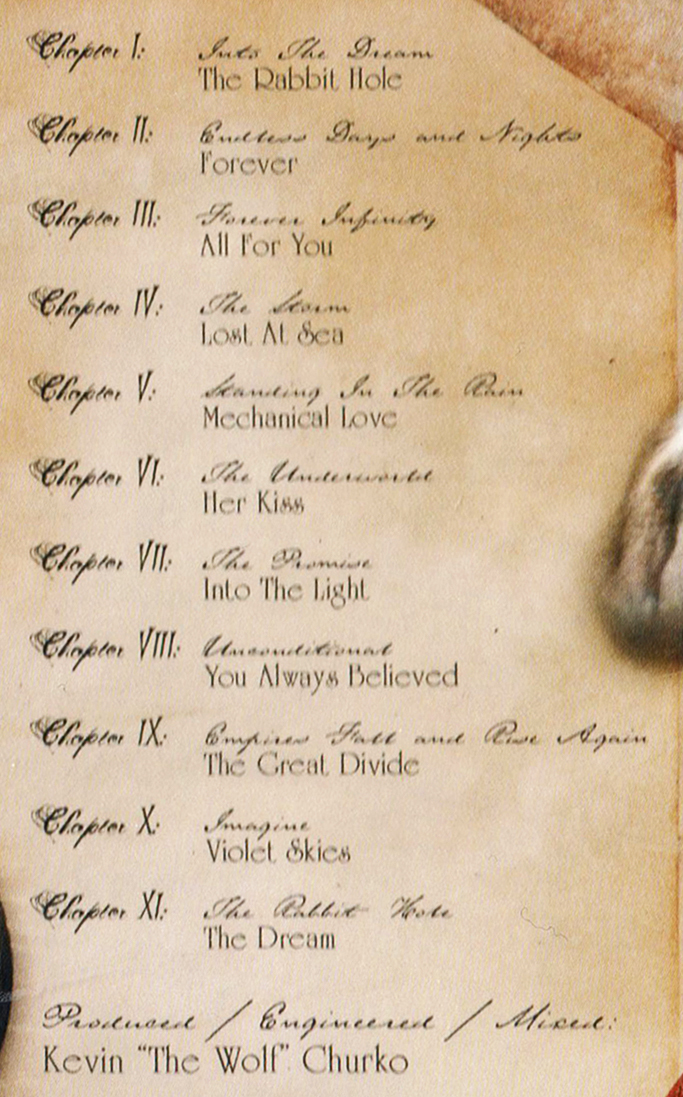 Chapter I: Into The Dream
The Rabbit Hole
Chapter II: Endless Days and Nights
Forever
Chapter III: Forever Infinity
All For You
Chapter IV: The Storm
Lost At Sea
Chapter V: Standing In The Rain
Mechanical Love
Chapter VI: The Underworld
Her Kiss
Chapter VII: The Promise
Into The Light
Chapter VIII: Unconditional
You Always Believed
Chapter IX: Empires Fall and Rise Again
The Great Divide
Chapter X: Imagine
Violet Skies
Chapter XI: The Rabbit Hole
The Dream
Produced / Engineered / Mixed:
Kevin "The Wolf" Churko